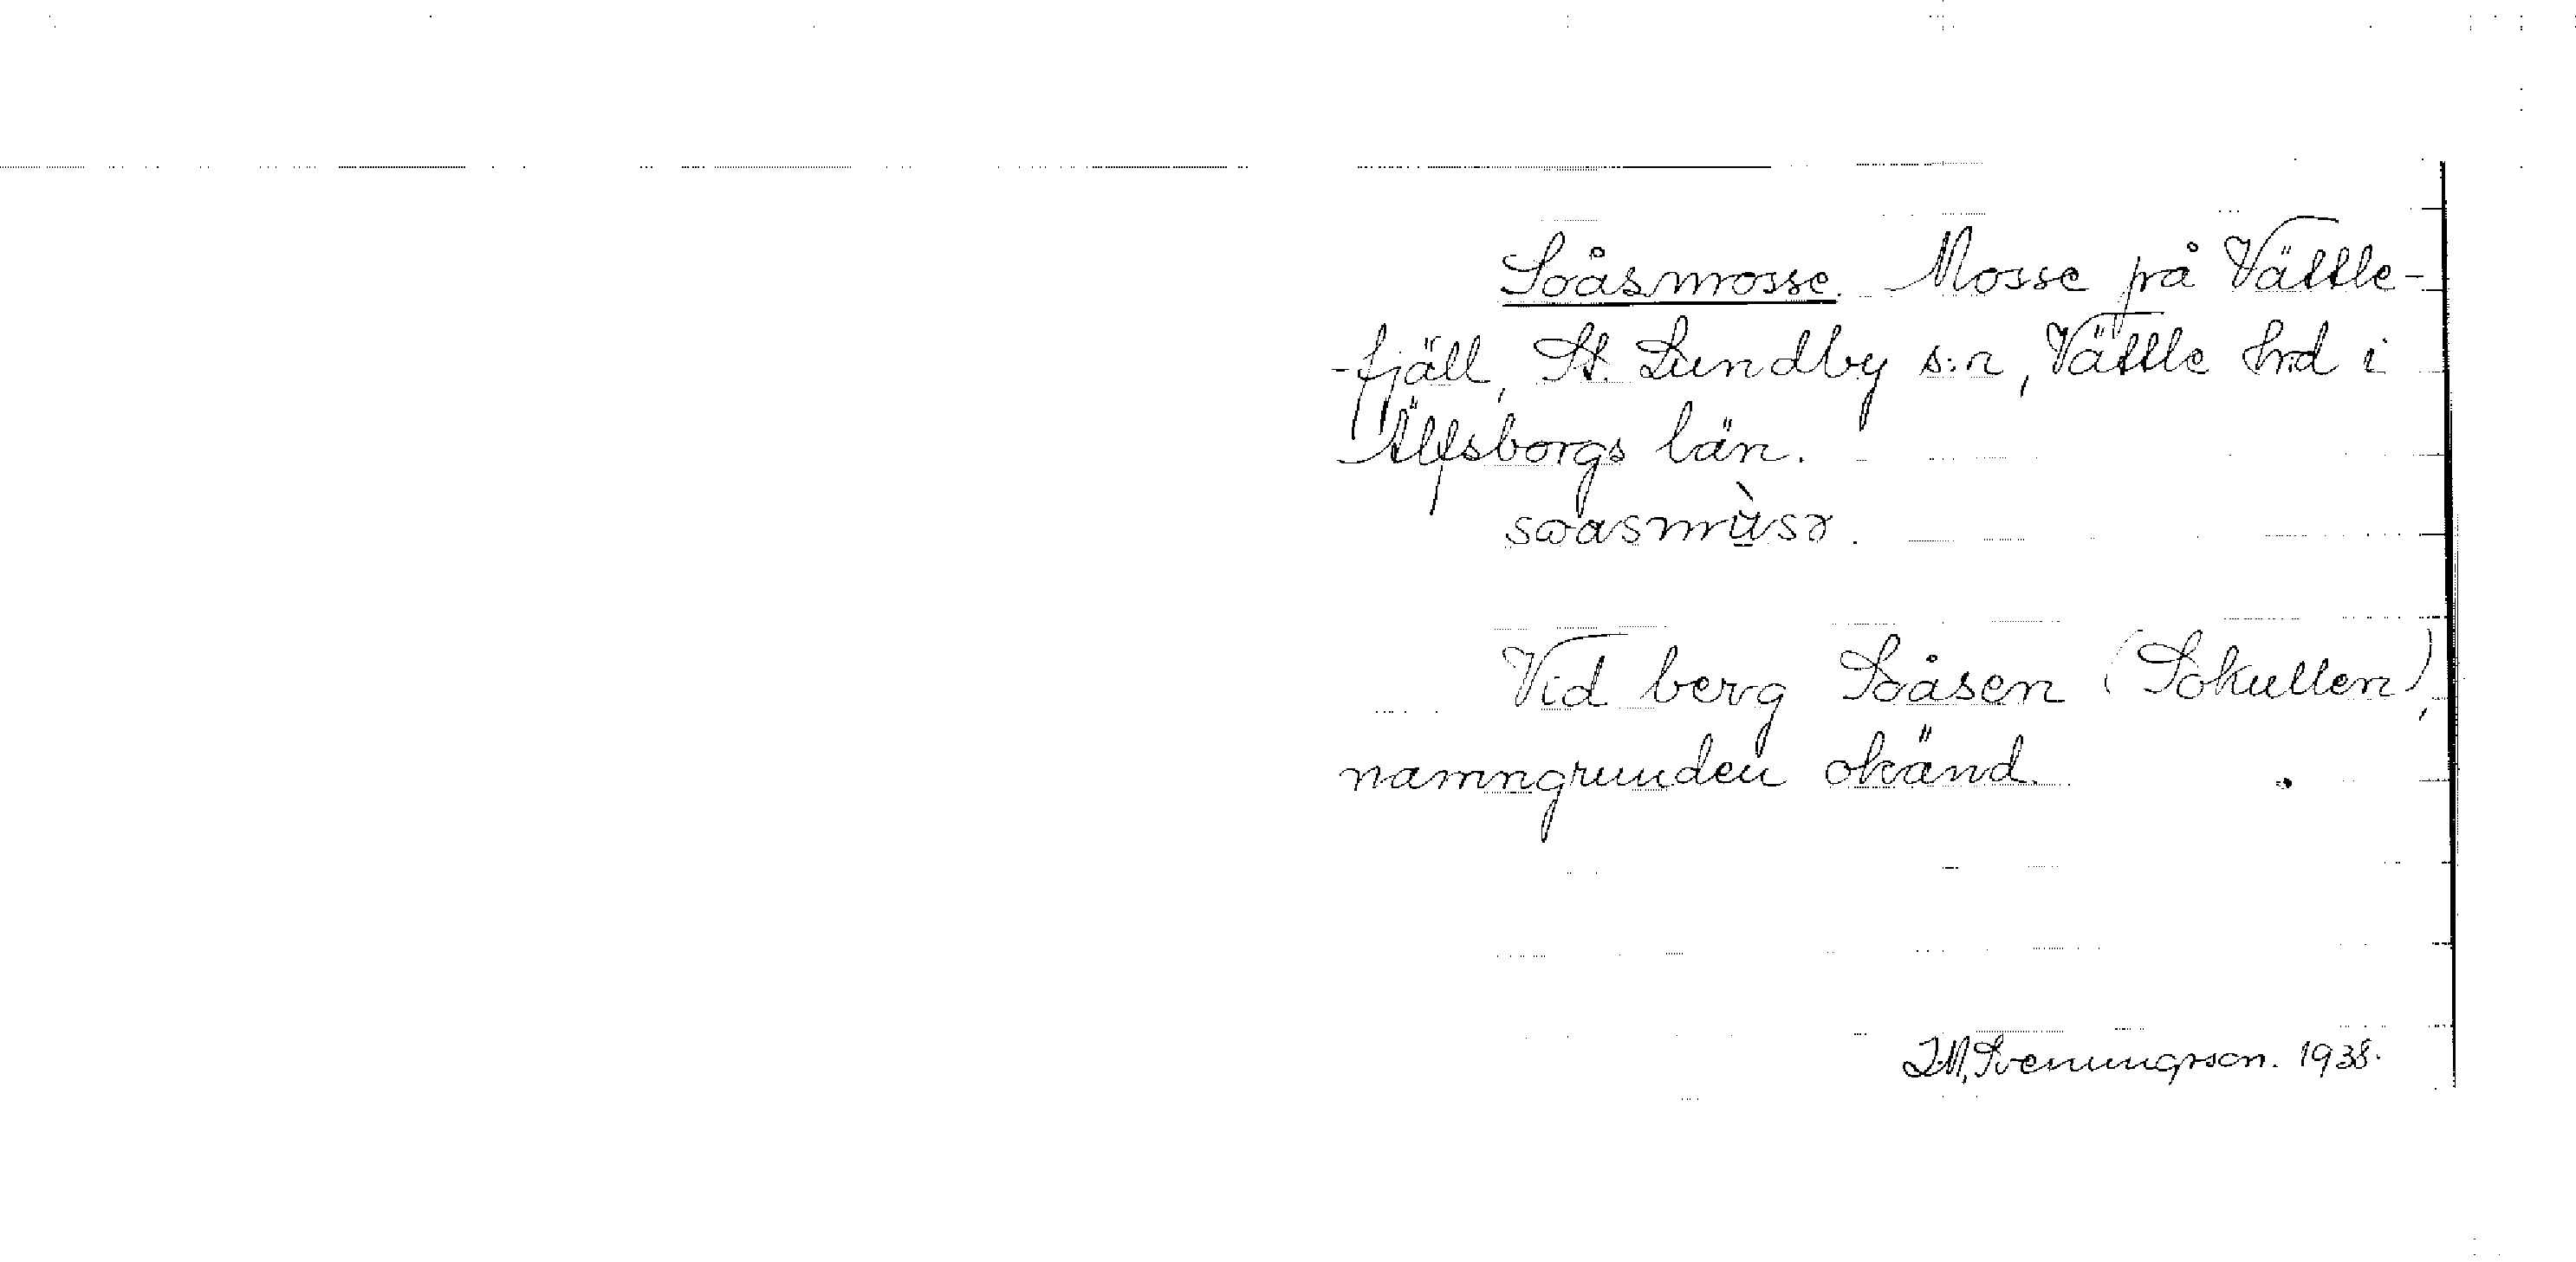 Soåsmosse. Mosse på Vättle-
-fjäll, St. Lundby s:n, Vättle hrd i
Älfsborgs län.
Vid berg Soåsen (Sokullen),
namngrunden okänd.
I.M. Svenungsson. 1938.